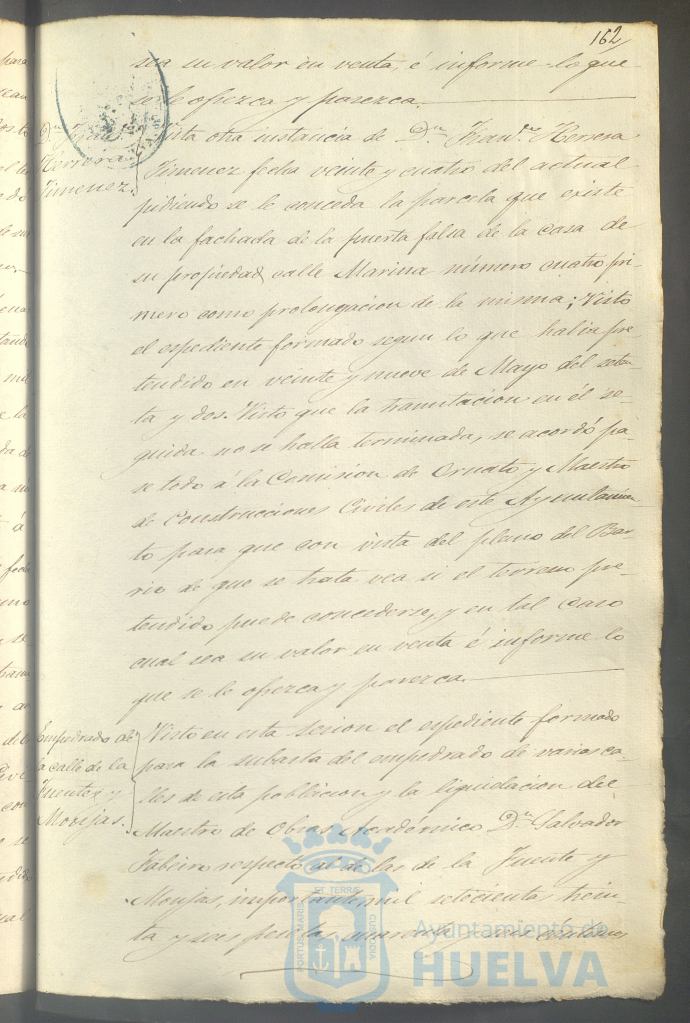 162
sea su valor en venta, é informe lo que
se le ofrezca y parezca.
Dn. Franco.
Herrera
Jimenez.
Vista otra instancia de Dn. Franco. Herrera
Jimenez fecha veinte y cuatro del actual
pidiendo se le conceda la parcela que existe
en la fachada de la puerta falsa de la casa de
su propiedad, calle Marina número cuatro pri-
mero como prolongacion de la misma; Visto
el espediente formado segun lo que habia pre
tendido en veinte y nueve de Mayo del seten
ta y dos. Visto que la tramitacion en él se-
guida no se halla terminada, se acordó pa-
se todo á la Comision de Ornato y Maestro
de Construcciones Civiles de este Ayuntamien
to para que con vista del plano del Bar-
rio de que se trata vea si el terreno pre-
tendido puede concederse, y en tal caso
cual sea su valor en venta é informe lo
que se le ofrezca y parezca.
Empedrado de
la calle de la
Fuente y
Monjas.
Visto en esta sesion el espediente formado
para la subasta del empedrado de varias ca-
lles de esta poblacion y la liquidacion del
Maestro de Obras Académico Dn. Salvador
respecto al de las de la Fuente y
Monjas, importante mil setecientas trein-
ta y seis pesetas, y seis céntimos
PORTUS MARIS ET TERRAE CUSTODIA
Ayuntamiento de
HUELVA